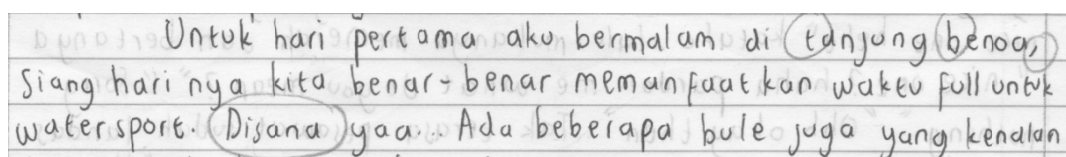 Untuk hari pertama aku bermalam di tanjung benoa,
Siang hari nya kita benar-benar memanfaatkan waktu full untuk
watersport. Disana yaa... Ada beberapa bule juga yang kenalan